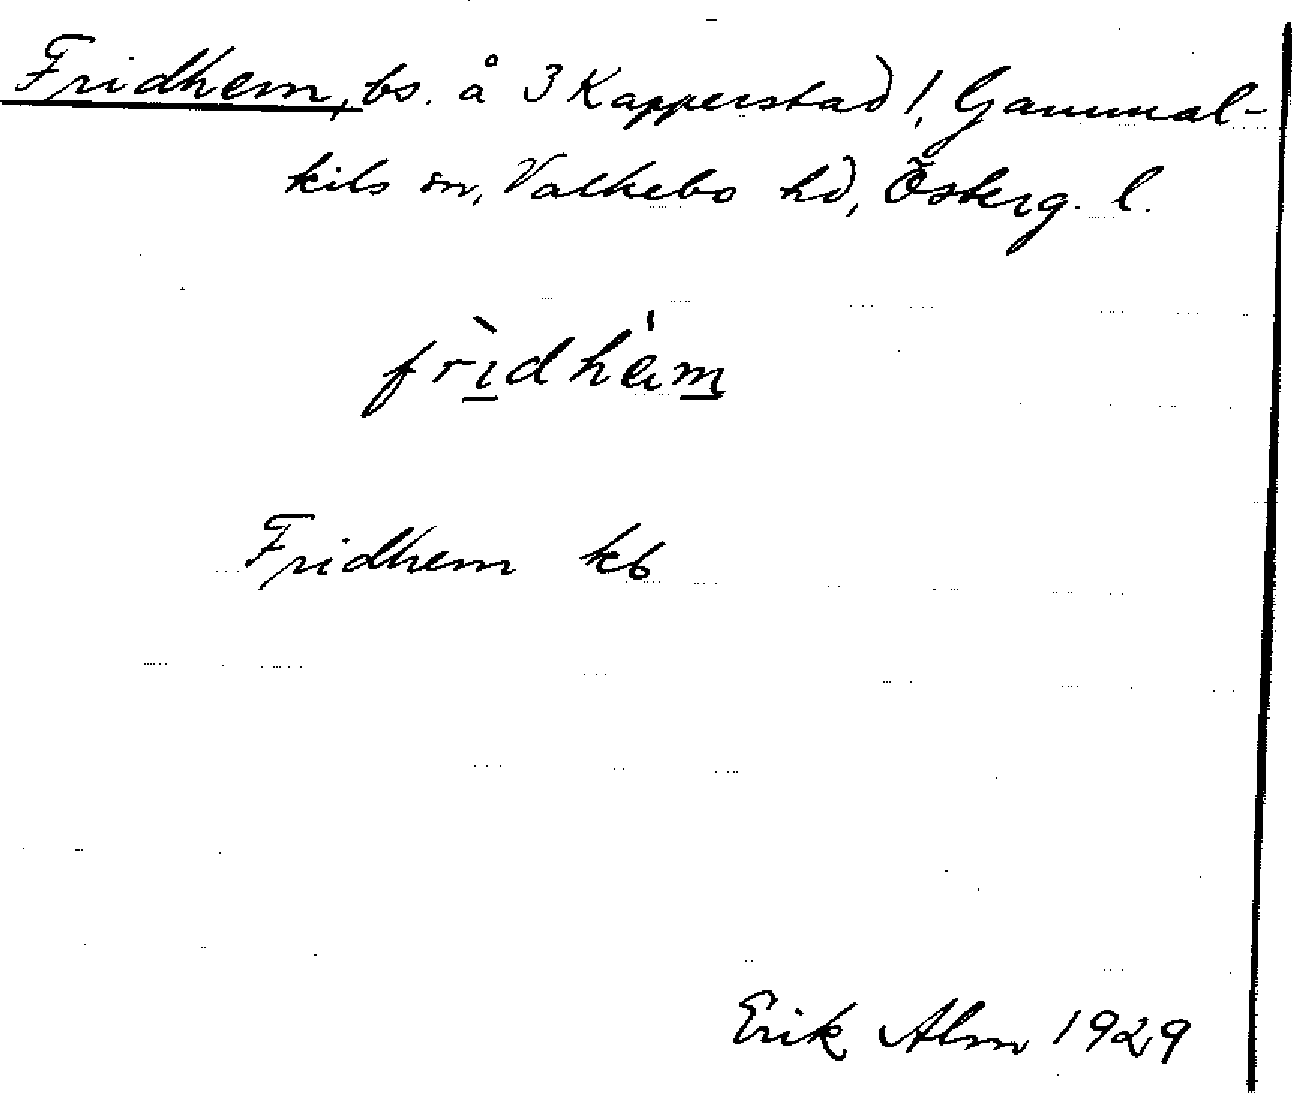 Fridhem, bs. å 3 Kapperstad 1, Gammal-
kils sn, Valkebo hd, Österg. l.
frìdhem
Fridhem kb
Erik Alm 1929